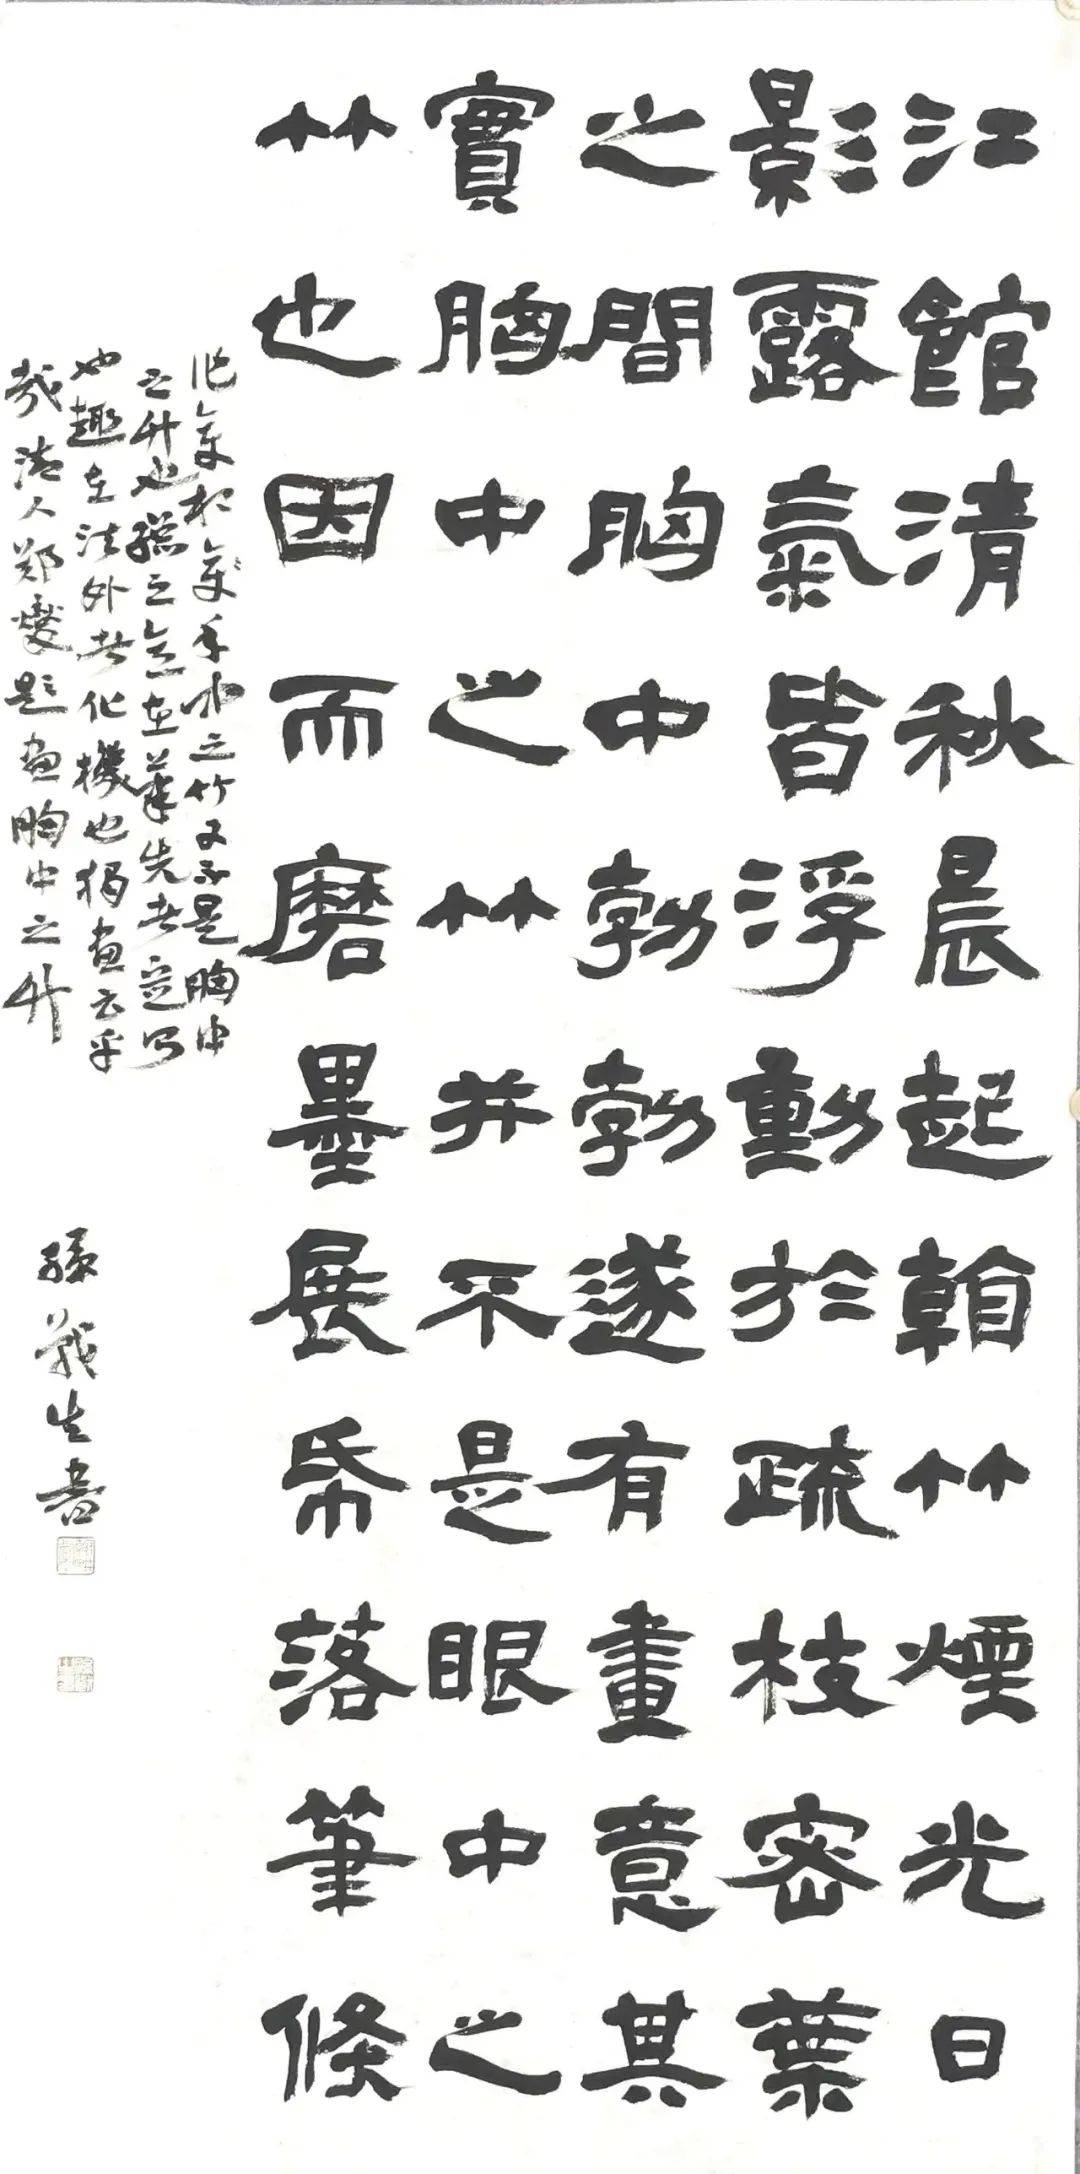 江館清秋晨起看竹煙光日
影露氣皆浮動於疏枝密葉
之間胸中勃勃遂有畫意其
實胸中之竹并不是眼中之
竹也因而磨墨展帋落筆條
作变相变手中之竹又不是胸中
之竹也總之意在筆先者定则
也趣在法外者化機也独畫云乎
哉清人郑燮題畫胸中之竹
孫生書